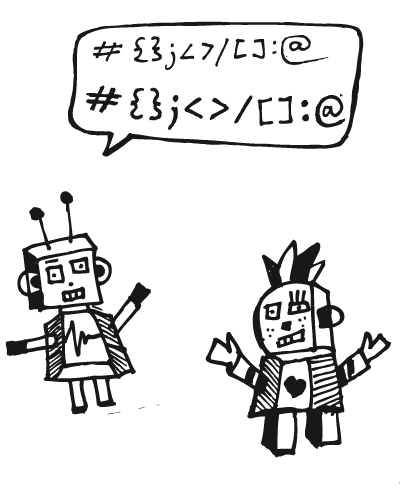 # {};<>/[]:@
# {};<>/[]:@